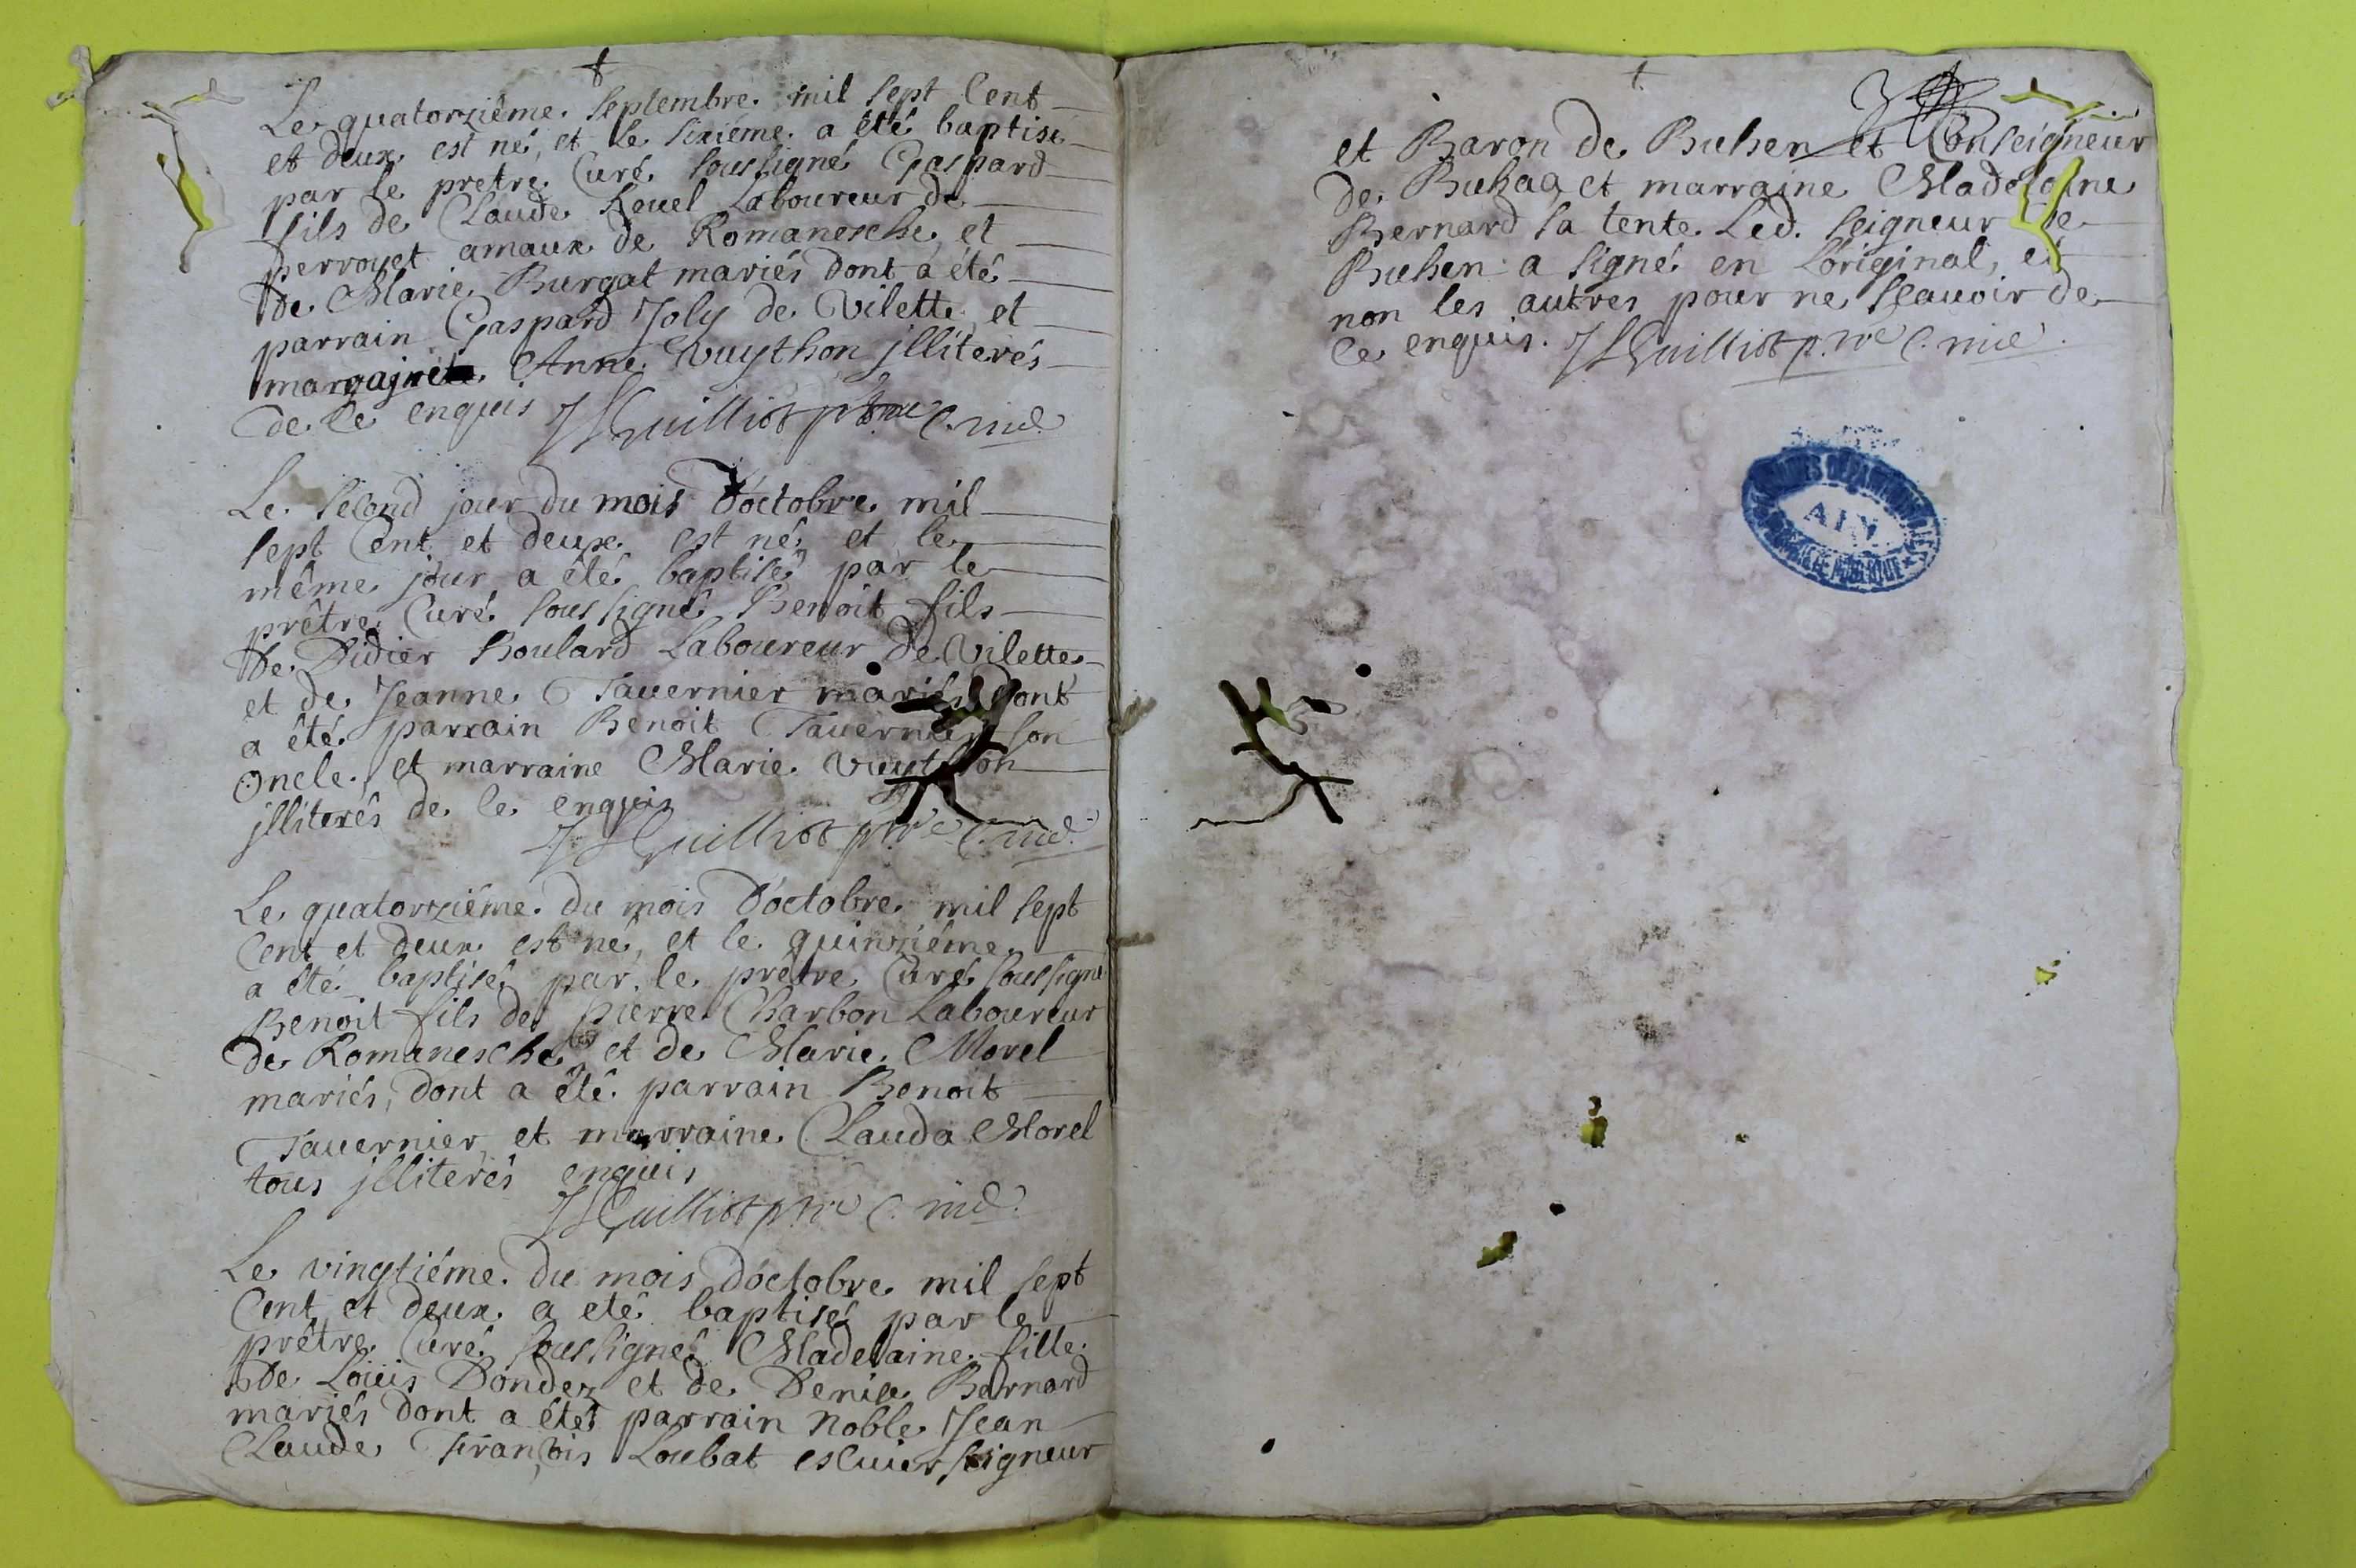 Le quatorziéme Septembre mil sept Cent
et deux est né, et le sixiéme a été baptisé
par le prêtre Curé soussigné Gaspard
fils de Claude Laboureur de
perrouet amaux de Romanesche, et
de Marie Burgat mariés dont a été
parrain Gaspard Joly de Vilette, et
Anne Vuython jlliterés
de ce enquis JLGuilliot p.tre C.
Le second jour du mois d'octobre mil
sept Cent et deux est né, et le
même jour a êté baptisé par le
prêtre Curé soussigné Benoit fils
de Didier Boulard Laboureur de Vilette
et de Jeanne Tauernier mariés dont
a été parrain Benoit Tauernier son
oncle, et marraine Marie Vuython
jlliterés de ce enquis
JLGuilliot p.tre C.
Le quatorziéme du mois d'octobre mil sept
Cent et deux est né, et le quinziéme
a êté baptisé par le prêtre Curé soussigné
Benoit fils de pierre Charbon Laboureur
de Romanesche et de Marie Morel
mariés, dont a êté parrain Benoit
Tauernier et marraine Clauda Morel
tous jlliterés enquis
JLGuilliot p.tre C.
Le vingtiéme du mois d'octobre mil sept
Cent et deux a eté baptisé par le
prêtre Curé soussigné Madelaine fille
de Loüis Dondez et de Denise Bernard
mariés dont a êté parrain noble Jean
Claude François Loubat escuier seigneur
et Baron de Buhen et Conseigneur
de et marraine Madelaine
Bernard sa tente Led. seigneur de
Buhen a signé en L'original, et
non les autres pour ne sçauoir de
ce enquis. JLGuilliot p.tre C.
AIN